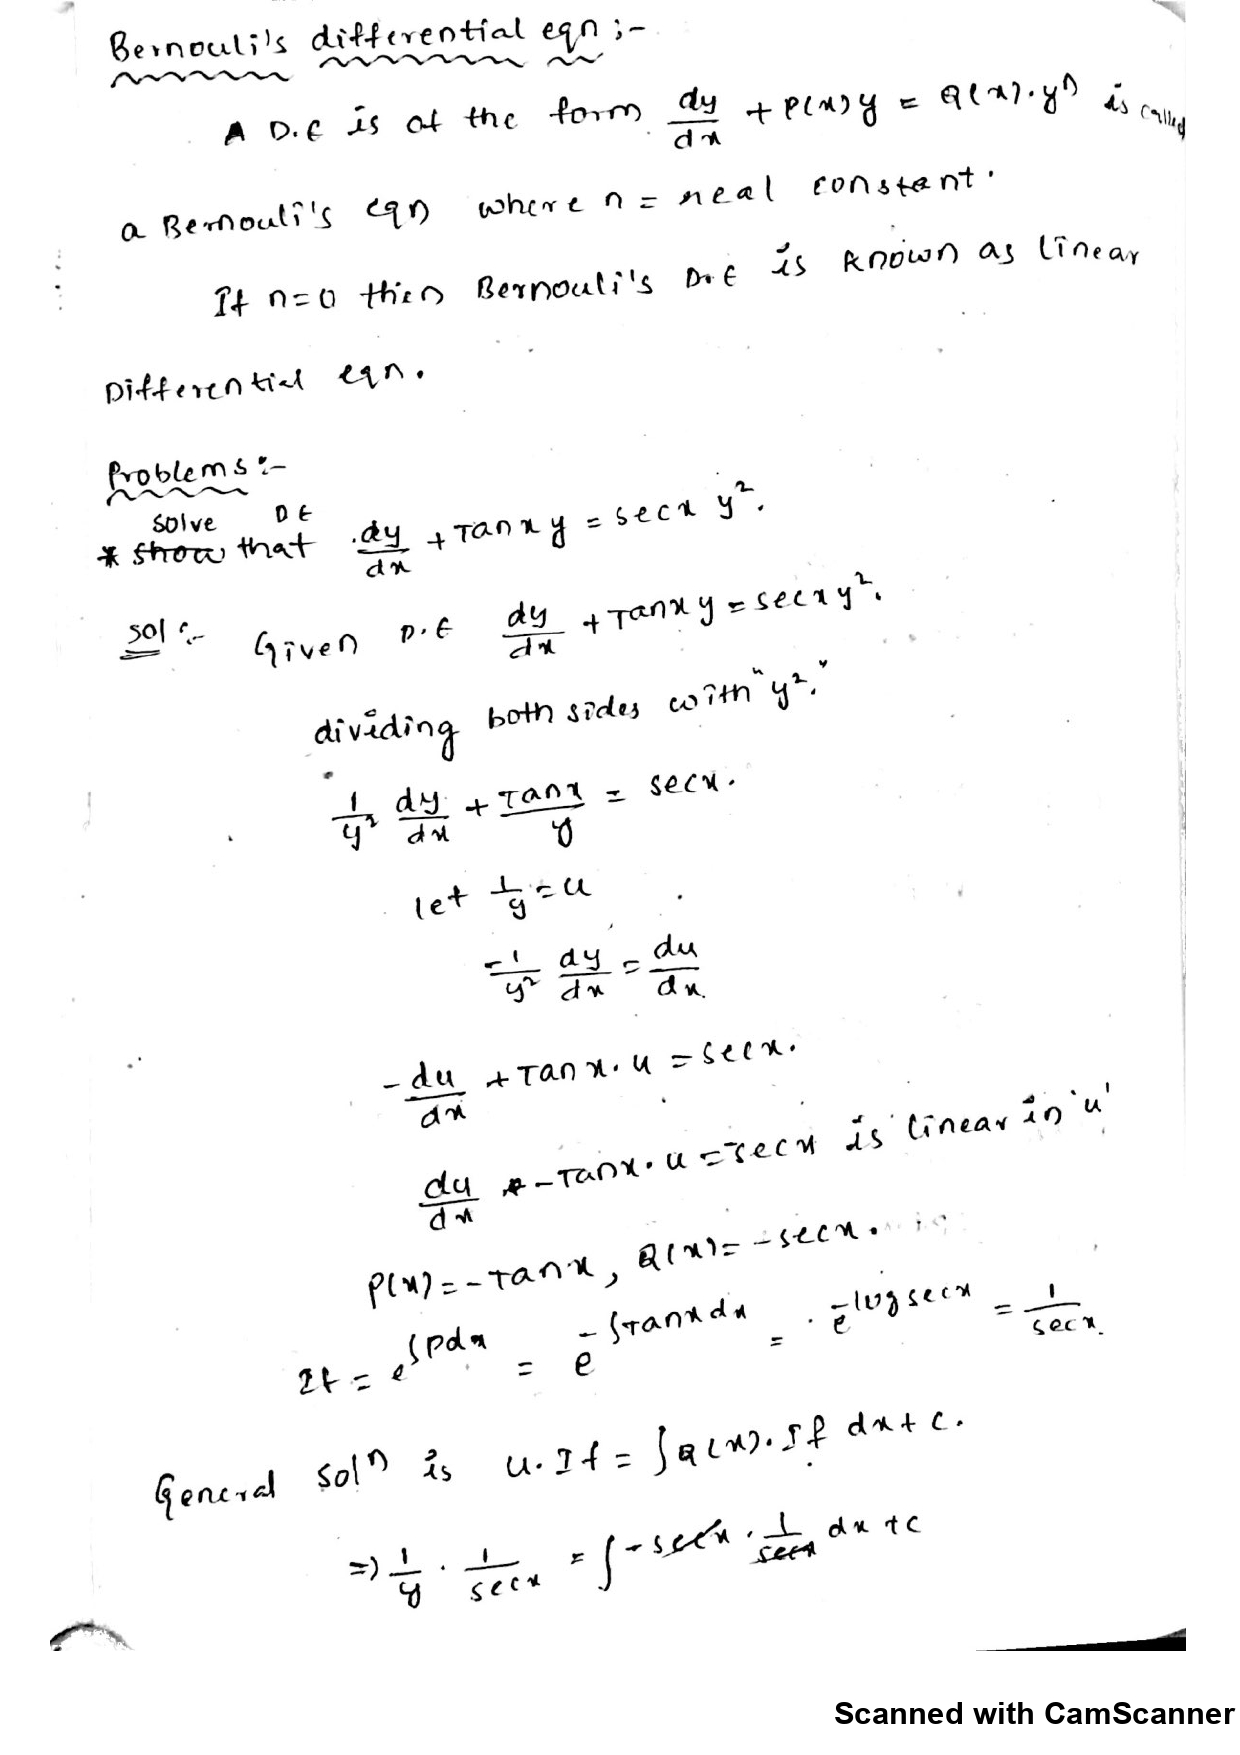 Bernouli's differential eqn :-
A D.E is of the form dy/dx + P(x)y = Q(x).yⁿ is called
a Bernouli's eqn where n = real constant.
If n=0 then Bernouli's D.E is known as linear
Differential eqn.
Problems :-
solve DE
* show that dy/dx + Tanx y = secx y².
sol :- Given D.E dy/dx + Tanx y = secx y².
dividing both sides with "y²."
1/y² dy/dx + Tanx/y = secx.
let 1/y = u
-1/y² dy/dx = du/dx.
-du/dx + Tanx.u = secx.
du/dx - Tanx.u = -secx is linear in 'u'
P(x) = -Tanx, Q(x) = -secx.
If = e^∫Pdx = e^-∫Tanxdx = e^-logsecx = 1/secx.
General solⁿ is u.If = ∫Q(x).If dx + c.
=> 1/y . 1/secx = ∫-secx . 1/secx dx + c
Scanned with CamScanner